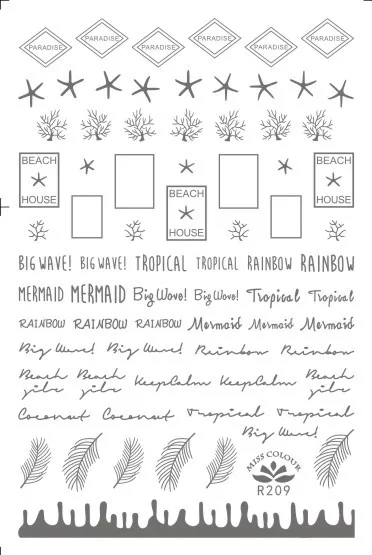 PARADISE PARADISE PARADISE PARADISE PARADISE PARADISE
BEACH HOUSE
BEACH HOUSE
BEACH HOUSE
BIG WAVE! BIG WAVE! TROPICAL TROPICAL RAINBOW RAINBOW
MERMAID MERMAID Big Wave! Big Wave! Tropical Tropical
RAINBOW RAINBOW RAINBOW Mermaid Mermaid Mermaid
Big Wave! Big Wave! Rainbow Rainbow
Beach Beach KeepCalm KeepCalm Beach
Coconut Coconut Tropical Tropical
Big Wave!
MISS COLOUR
R209